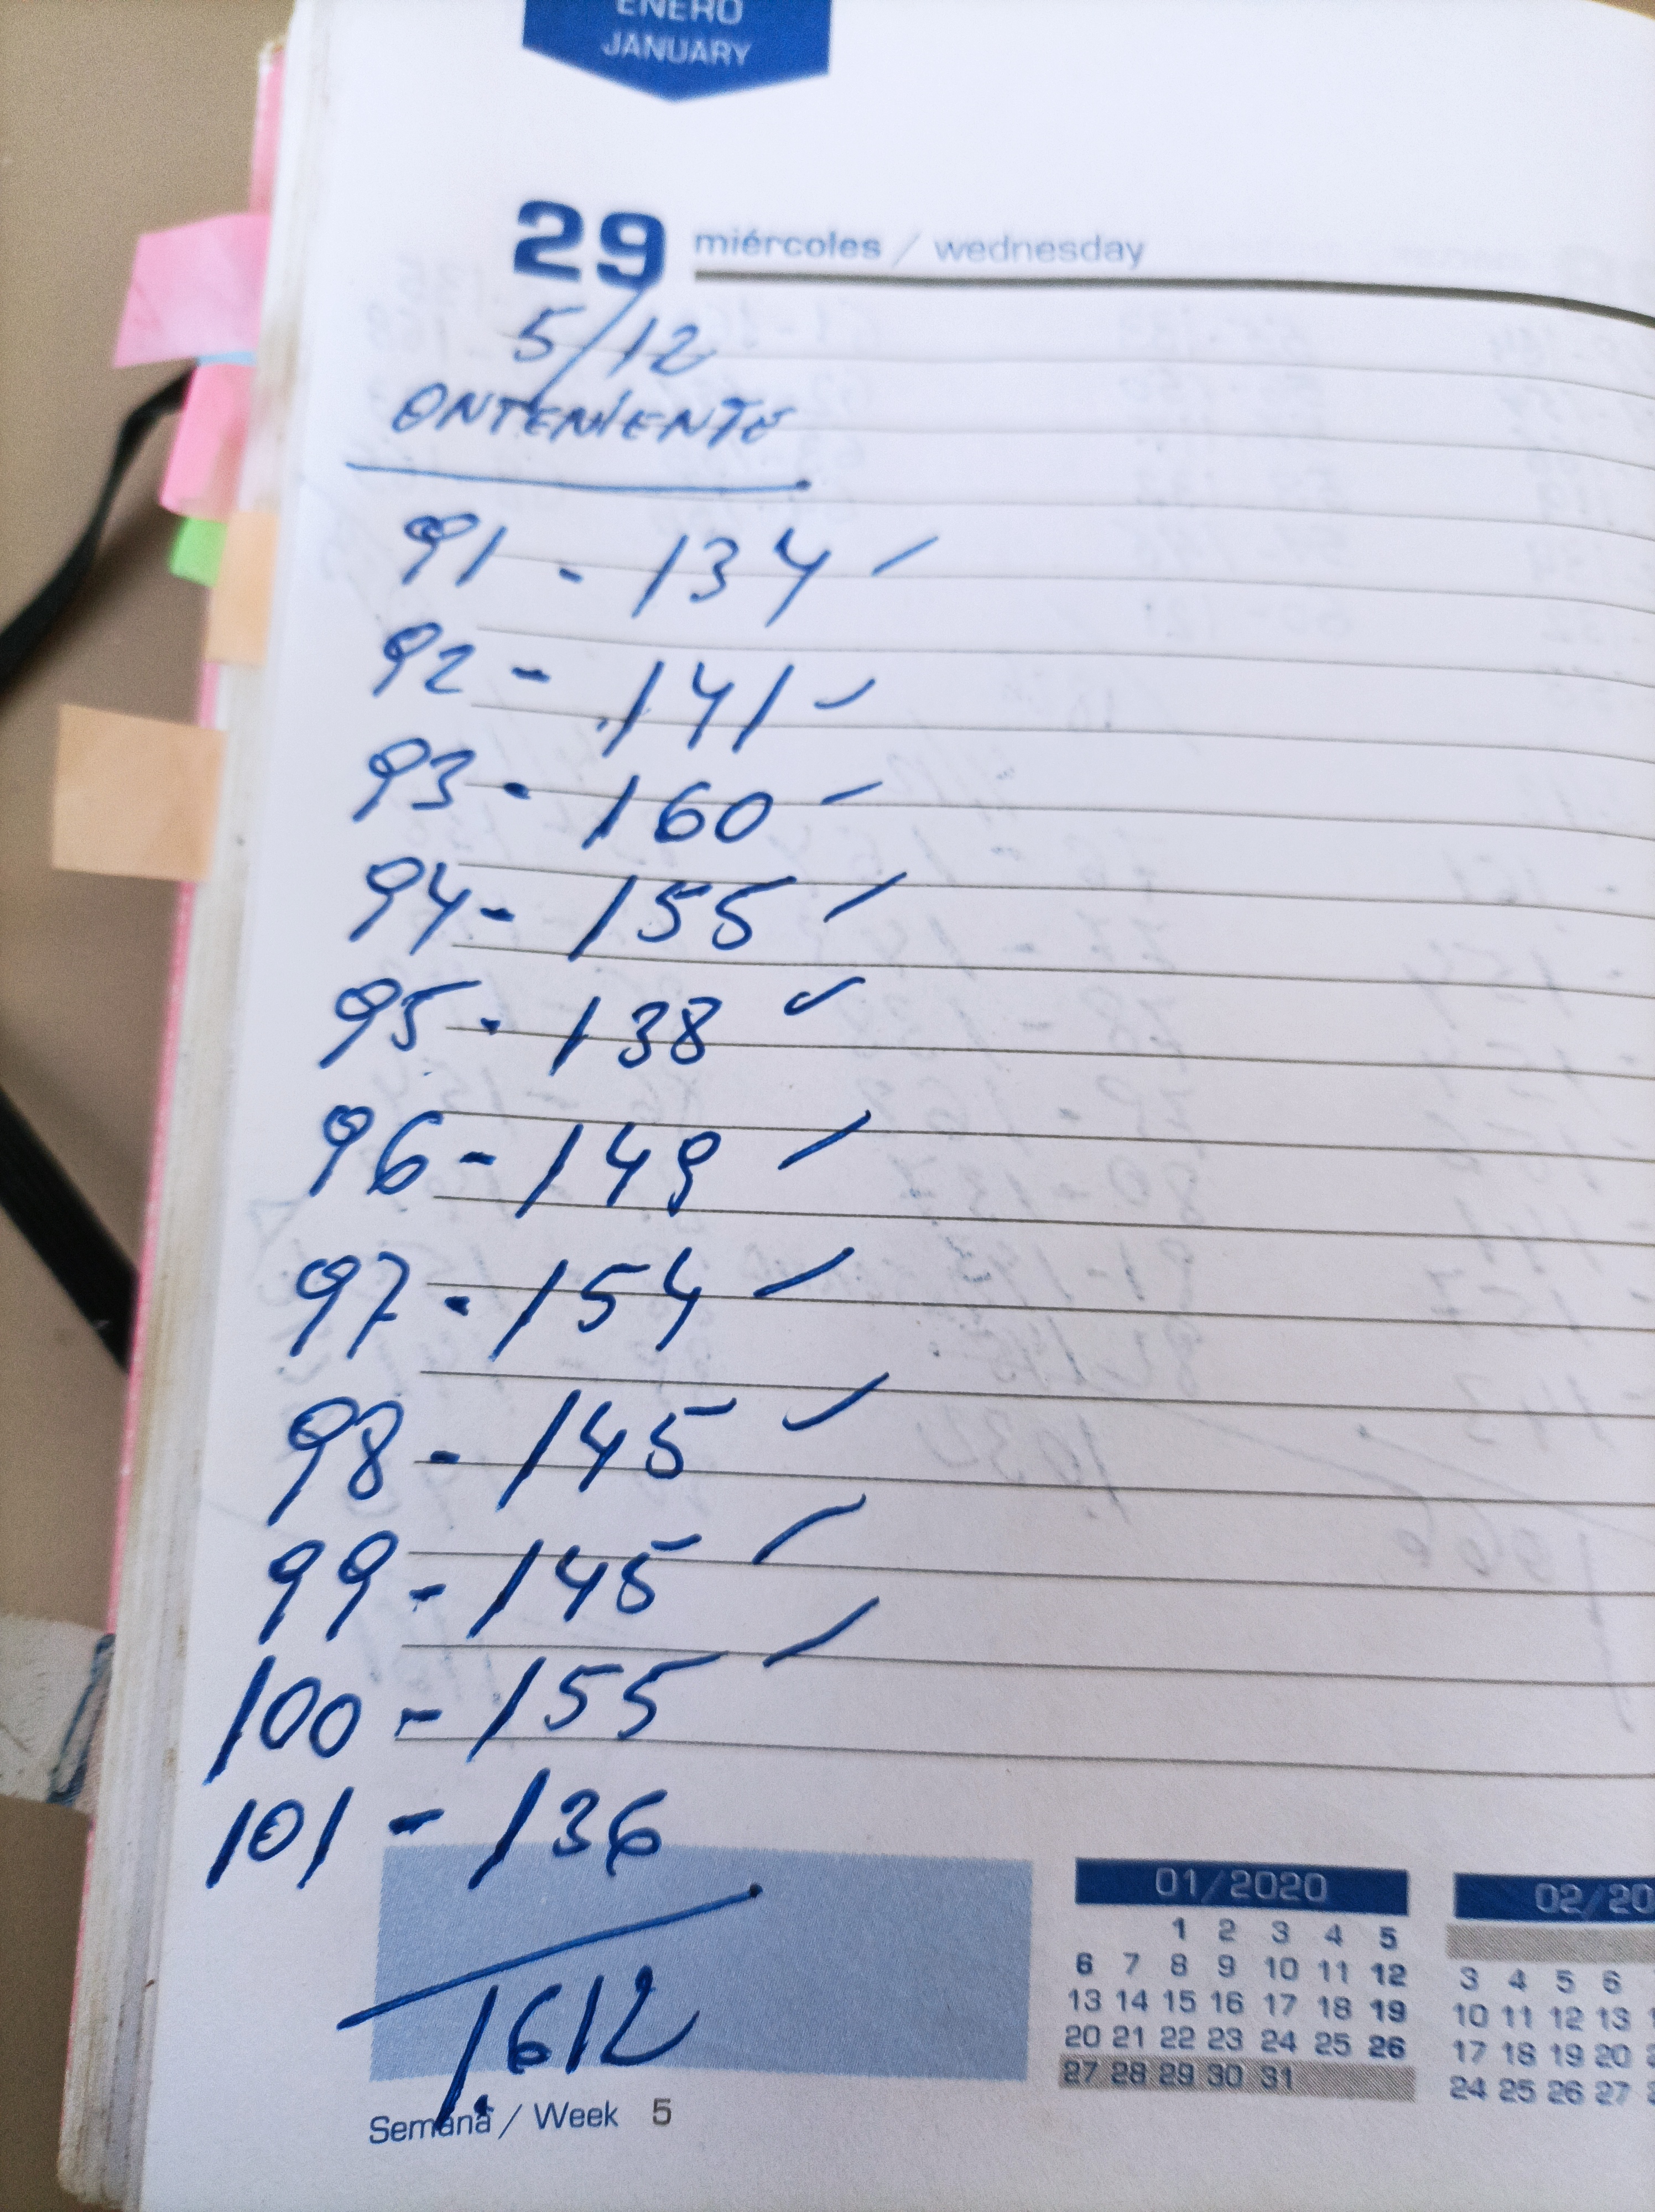 ENERO
JANUARY
29 miércoles / wednesday
5/12
ONTENIENTE
91 - 134
92 - 141
93 - 160
94 - 155
95 - 138
96 - 149
97 - 154
98 - 145
99 - 145
100 - 155
101 - 136
1.612
01/2020
1 2 3 4 5
6 7 8 9 10 11 12
13 14 15 16 17 18 19
20 21 22 23 24 25 26
27 28 29 30 31
02/20
3 4 5 6
10 11 12 13
17 18 19 20
24 25 26 27
Semana / Week 5